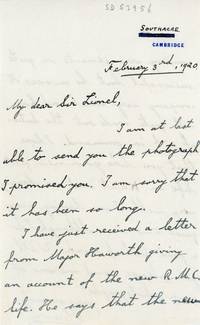 SD 53956
SOUTHACRE
CAMBRIDGE
February 3rd, 1920
My dear Sir Lionel,
I am at last
able to send you the photograph
I promised you. I am sorry that
it has been so long.
I have just received a letter
from Major Haworth giving
an account of the new R.M.C.
life. He says that the new